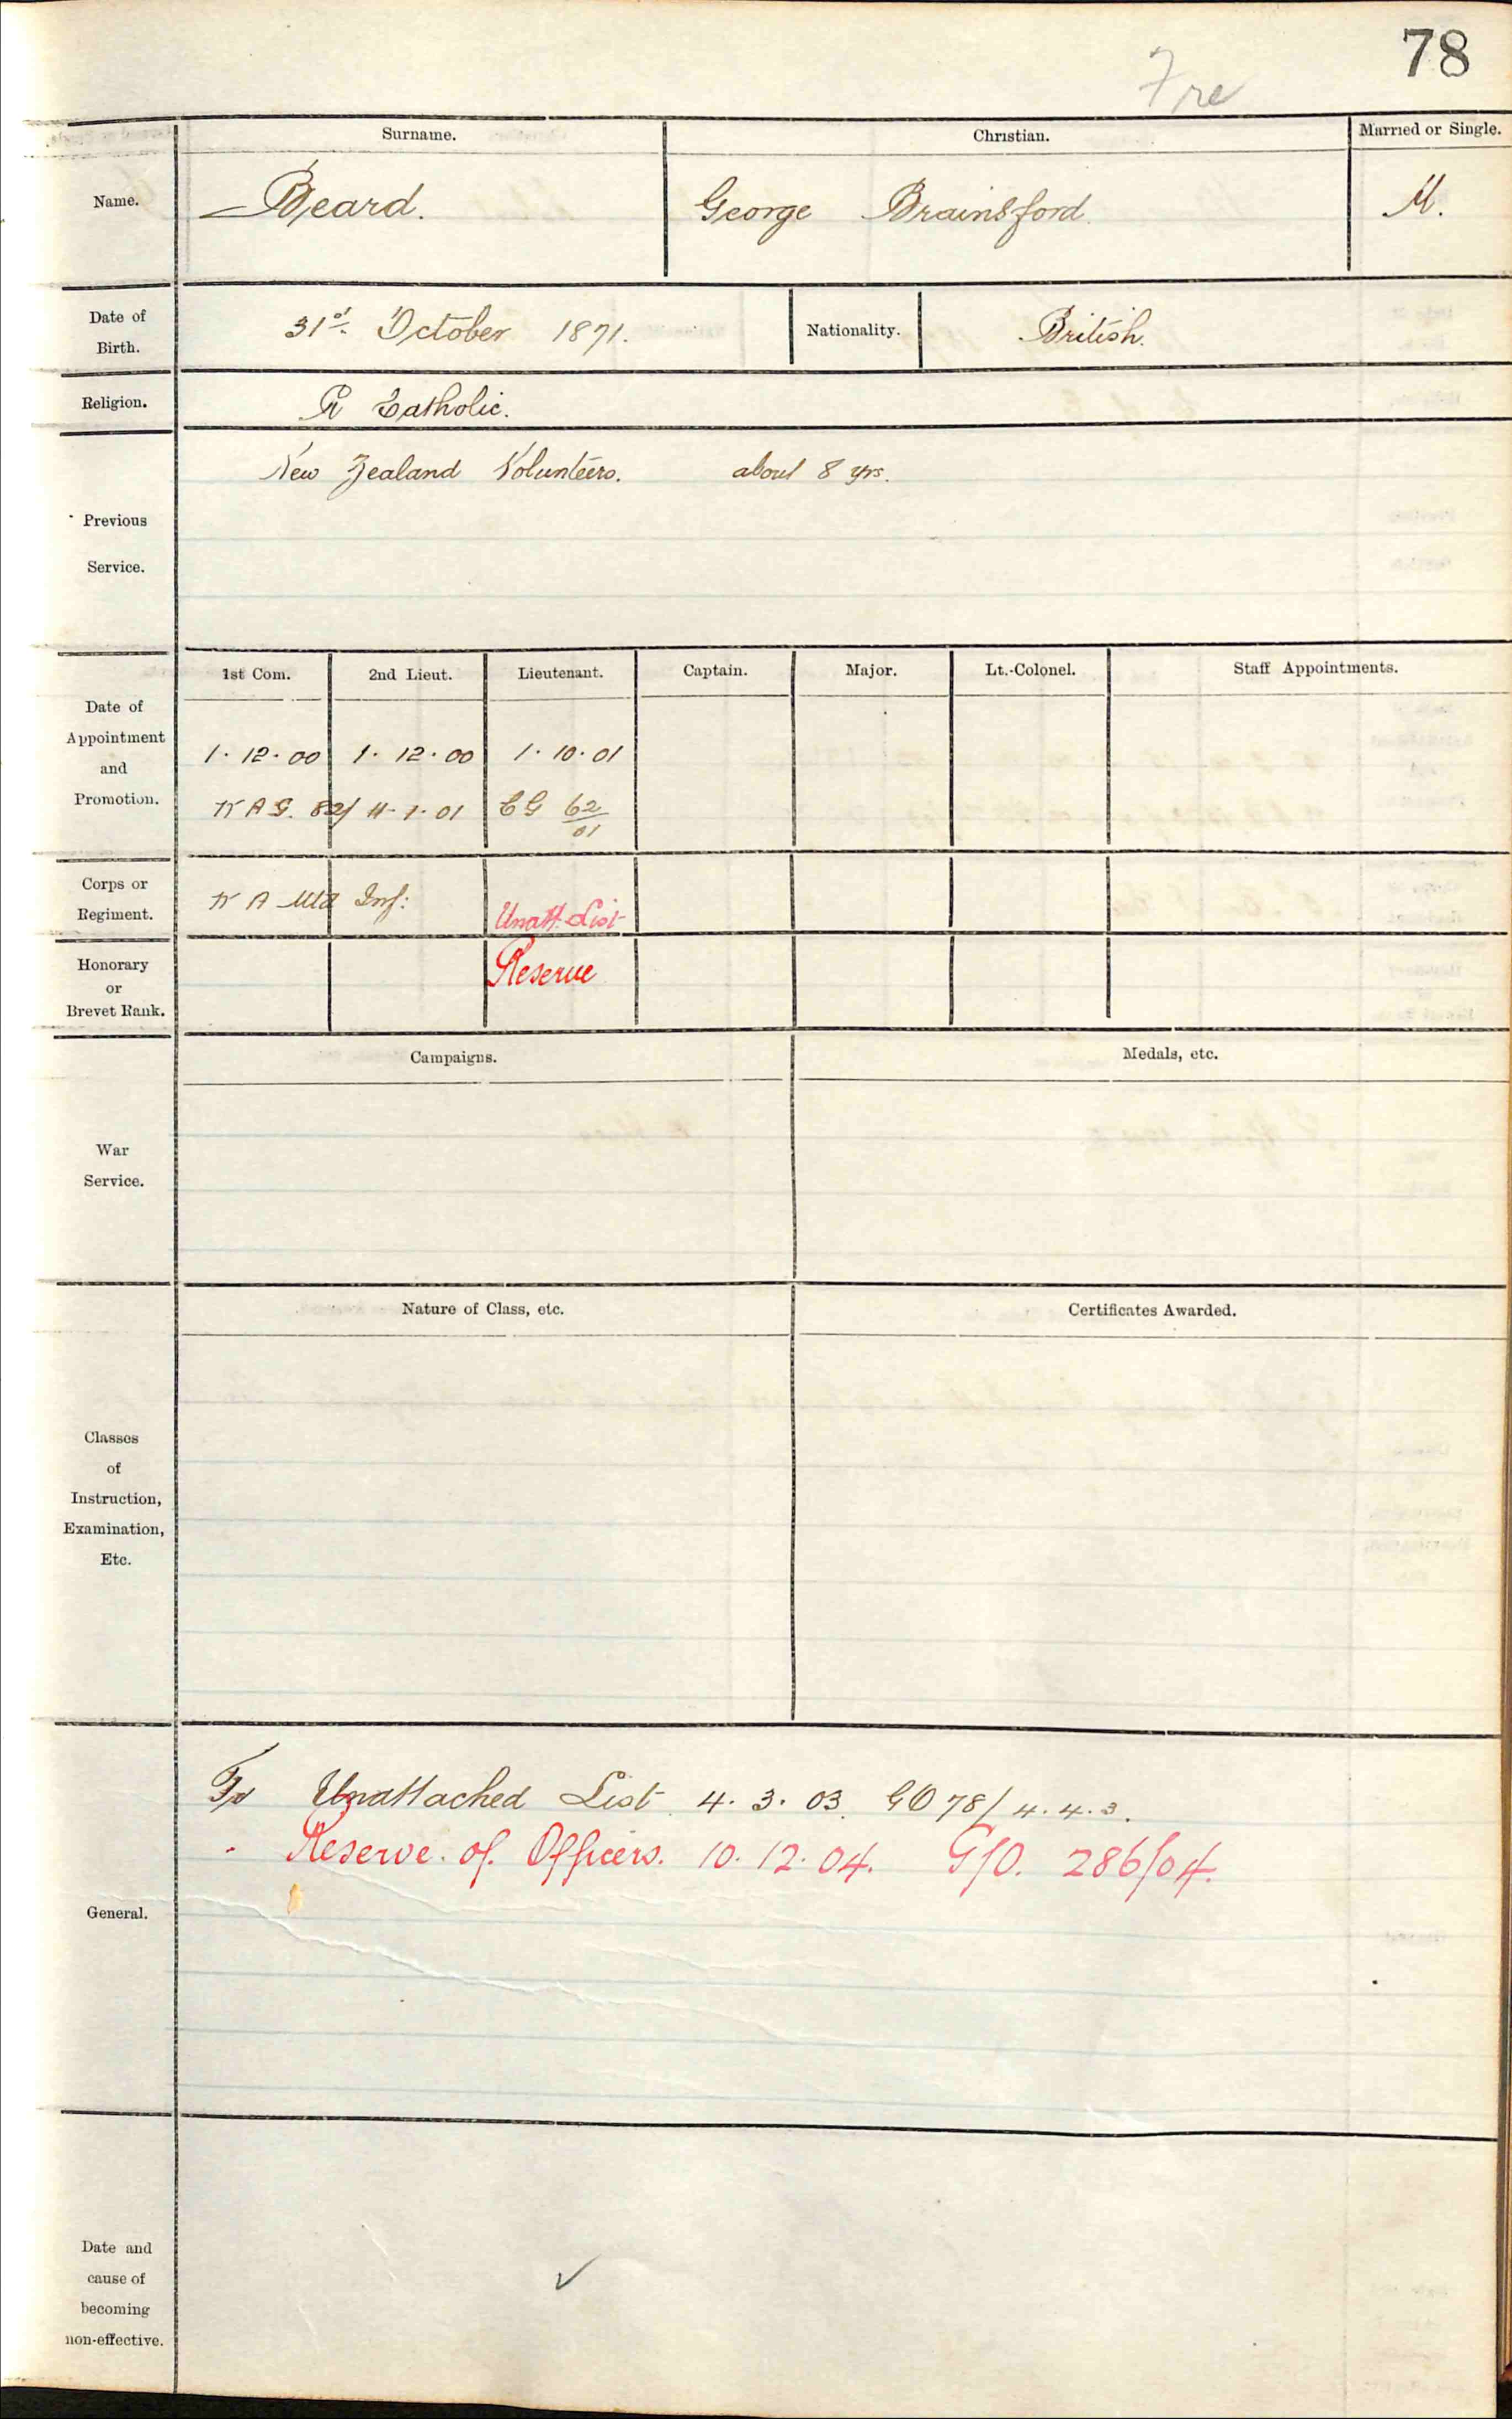 78
Fre
Surname. Christian. Married or Single.
Name. Beard. George Brainsford. M.
Date of Birth. 31st. October 1871. Nationality. British.
Religion. R Catholic.
New Zealand Volunteers. about 8 yrs.
Previous
Service.
1st Com. 2nd Lieut. Lieutenant. Captain. Major. Lt.-Colonel. Staff Appointments.
Date of
Appointment
and
Promotion.
1. 12. 00 1. 12. 00 1. 10. 01
W A G. 82/ 11. 1. 01 C G 62/01
Corps or
Regiment.
W A Mtd Inf: Unatt. List
Honorary
or
Brevet Rank.
Reserve
Campaigns. Medals, etc.
War
Service.
Nature of Class, etc. Certificates Awarded.
Classes
of
Instruction,
Examination,
Etc.
To Unattached List 4. 3. 03. GO 78/ 4. 4. 3.
" Reserve of Officers. 10. 12. 04. G/O. 286/04.
General.
Date and
cause of
becoming
non-effective.